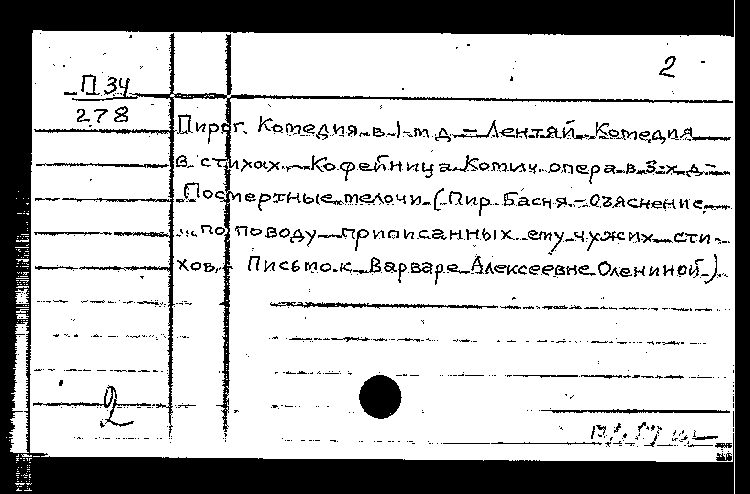 2
П 34
278
Пирог. Комедия в 1-м д. – Лентяй. Комедия
в стихах. – Кофейница. Комич. опера в 3-х д –
Посмертные мелочи (Пир. Басня. – Оъяснение
... по поводу приписанных ему чужих сти-
хов. – Письмо к Варваре Алексеевне Олениной.)
2